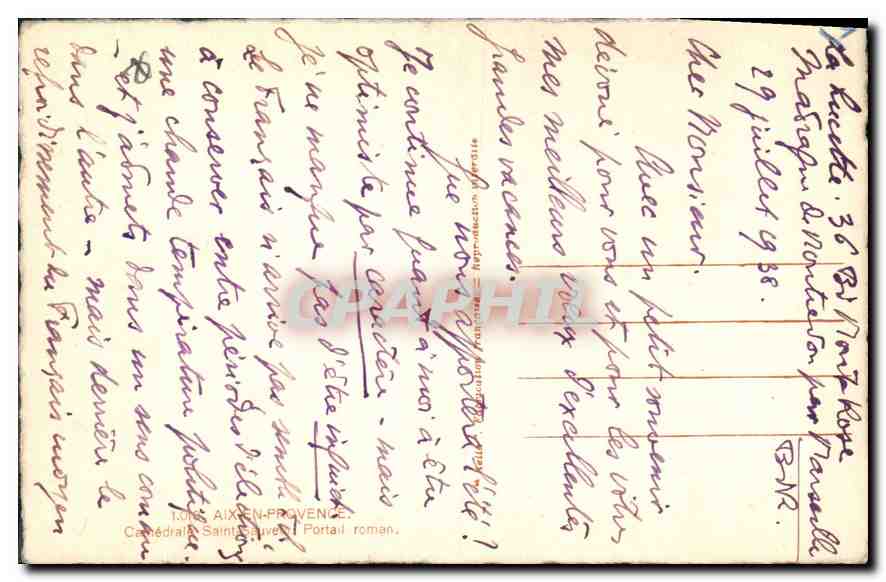 La Lucette. 36 Bd Mont Rose
Madrague de Montredon par Marseille
29 juillet 1938.
BDR.
Cher Monsieur.
Avec un petit souvenir
dévoué pour vous et pour les vôtres
mes meilleurs vœux d'excellentes
grandes vacances.
Que nous apportera l'été?
Je continue quant à moi à être
optimiste par caractère - mais
je ne manque pas d'être inquiet
Le Français n'arrive pas semble t'il
à conserver entre périodes d'élections
une chaude température politique.
et j'admets dans un sens comme
dans l'autre - mais derrière le
du Français moyen
1.018 AIX-EN-PROVENCE.
Cathédrale Saint-Sauveur. Portail roman.
CPAPHIL